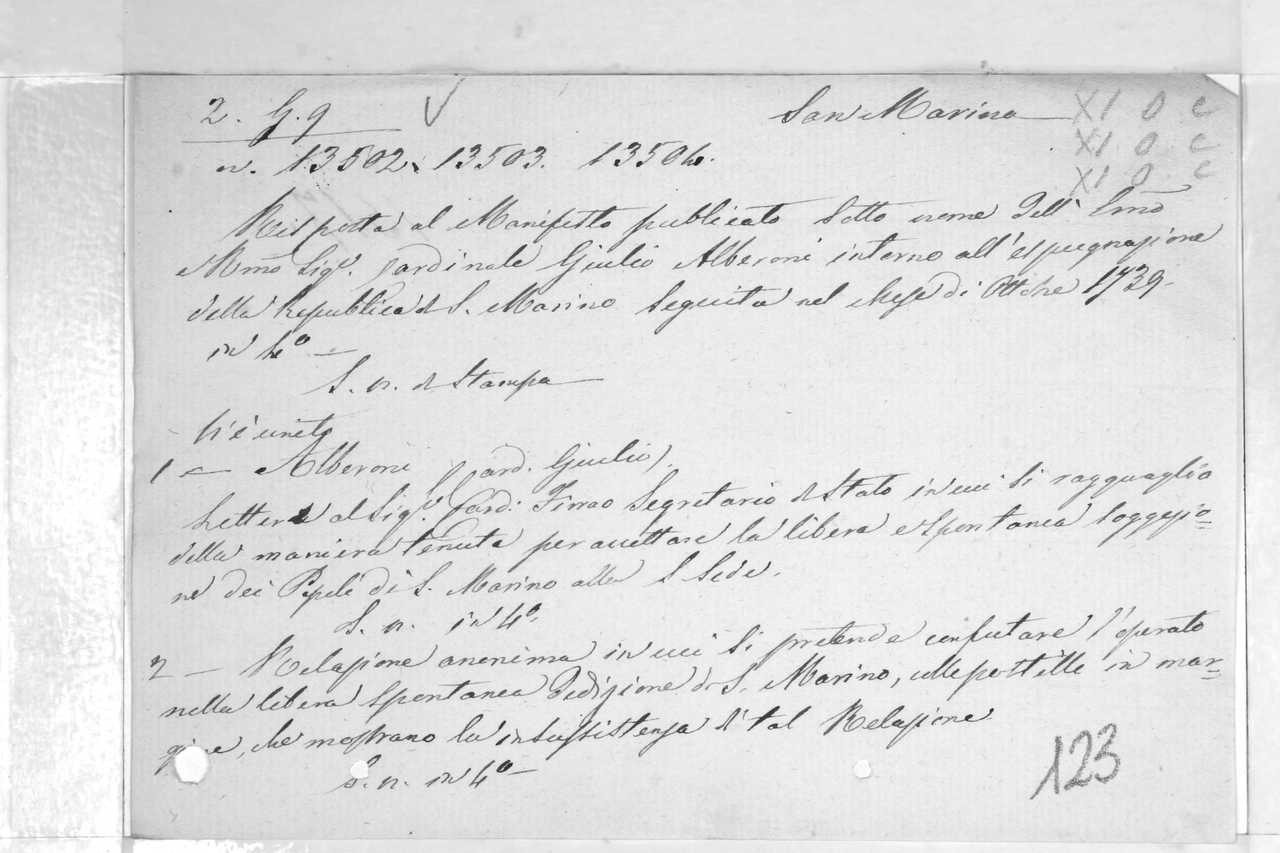 2. G. 9 San Marino XI O C
XI O C
n. 13502. 13503. 13504. XI O C
Risposta al Manifesto publicato sotto nome dell' Emo
Rmo Sigr. Cardinale Giulio Alberoni intorno all'espugnazione
della Republica di S. Marino seguita nel Mese di Ottobre 1739.
in 4o —
S. n. di Stampa
V'è unito
1 — Alberoni (Card. Giulio).
Lettera al Sigr. Card. Firrao Segretario di Stato in cui si ragguaglia
della maniera tenuta per accettare la libera e spontanea soggezio=
ne dei Popoli di S. Marino alla S. Sede.
S. n. in 4o.
2 — Relazione anonima in cui si pretende confutare l'operato
nella libera spontanea Dedizione di S. Marino, colle postille in mar=
gine, che mostrano la insussistenza di tal Relazione
S. n. in 4o —
123